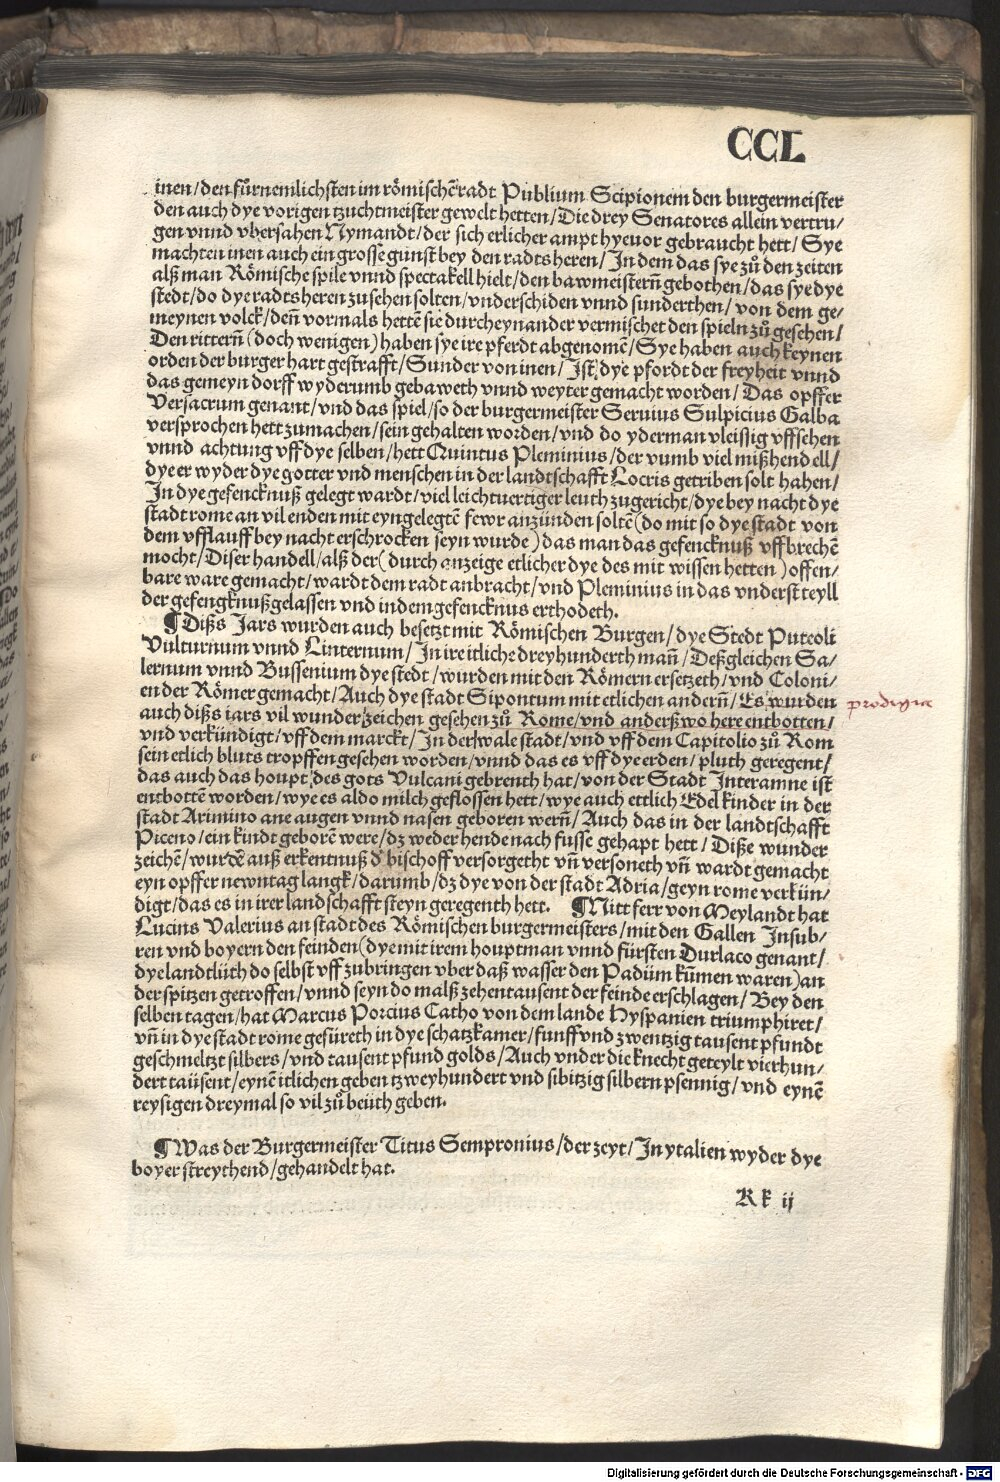 CCL
inen/den fůrnemlichsten im römischē radt Publium Scipionem den burgermeister
den auch dye vorigen tzuchtmeister gewelt hetten/Die drey Senatores allein vertru/
gen vnnd vbersahen Nymandt/der sich erlicher ampt hyeuor gebraucht hett/Sye
machten inen auch ein grosse gunst bey den radtsheren/In dem das sye zů den zeiten
alß man Römische spile vnnd spectakell hielt/den bawmeisterñ gebothen/das sye dye
stedt/do dye radtsheren zusehen solten/vnderschiden vnnd sunderthen/von dem ge/
meynen volck/deñ vormals hettē sie durcheynander vermischet den spieln zů gesehen/
Den ritterñ (doch wenigen) haben sye ire pferdt abgenomē/Sye haben auch keynen
orden der burger hart gestrafft/Sunder von inen/Ist dye pfordt der freyheit vnnd
das gemeyn dorff wyderumb gebaweth vnnd weyter gemacht worden/Das opffer
Versacrum genant/vnd das spiel/so der burgermeister Seruius Sulpicius Galba
versprochen hett zumachen/sein gehalten worden/vnd do yderman vleissig vffsehen
vnnd achtung vff dye selben/hett Quintus Pleminius/der vumb viel mißhendell/
dye er wyder dye gotter vnd menschen in der landtschafft Locris getriben solt haben/
In dye gefencknuß gelegt wardt/viel leichtuertiger leuth zugericht/dye bey nacht dye
stadt rome an vil enden mit eyngelegtē fewr anzünden soltē (do mit so dye stadt von
dem vfflauff bey nacht erschrocken seyn wurde) das man das gefencknuß vffbrechē
mocht/Diser handell/alß der (durch anzeige etlicher dye des mit wissen hetten) offen/
bare ware gemacht/wardt dem radt anbracht/vnd Pleminius in das vnderst teyll
der gefengknuß gelassen vnd in dem gefencknus erthodeth.
¶Dißs Jars wurden auch besetzt mit Römischen Burgen/dye Stedt Puteoli
Vulturnum vnnd Linternum/In ire itliche dreyhunderth mañ/Deßgleichen Sa/
lernum vnnd Bussenium dye stedt/wurden mit den Römern ersetzeth/vnd Coloni/
en der Römer gemacht/Auch dye stadt Sipontum mit etlichen anderñ/Es wurden
prodigia
auch dißs iars vil wunderzeichen gesehen zů Rome/vnd anderßwo here entbotten/
vnd verkündigt/vff dem marckt/In der wale stadt/vnd vff dem Capitolio zů Rom
sein etlich bluts tropffen gesehen worden/vnnd das es vff dye erden/pluth geregent/
das auch das houpt des gots Vulcani gebrenth hat/von der Stadt Interamne ist
entbottē worden/wye es aldo milch geflossen hett/wye auch ettlich Edel kinder in der
stadt Arimino ane augen vnnd nasen geboren werñ/Auch das in der landtschafft
Piceno/ein kindt geborē were/dz weder hende nach fusse gehapt hett/Diße wunder
zeichē/wurdē auß erkentnuß d bischoff versorgetht vñ versoneth vñ wardt gemacht
eyn opffer newntag langk/darumb/dz dye von der stadt Adria/geyn rome verkün/
digt/das es in irer landschafft steyn geregenth hett. ¶Nitt ferr von Meylandt hat
Lucius Valerius an stadt des Römischen burgermeisters/mit den Gallen Insub/
ren vnd boyern den feinden (dye mit irem houptman vnnd fürsten Durlaco genant/
dye landtlüth do selbst vff zubringen vber daß wasser den Padüm kům̄en waren) an
der spitzen getroffen/vnnd seyn do malß zehentausent der feinde erschlagen/Bey den
selben tagen/hat Marcus Porcius Catho von dem lande Hyspanien triumphiret/
vñ in dye stadt rome gefüreth in dye schatzkamer/funff vnd zwentzig tausent pfundt
geschmeltzt silbers/vnd tausent pfund golds/Auch vnder die knecht geteylt vierhun/
dert taüsent/eynē itlichen geben tzweyhundert vnd sibitzig silbern pfennig/vnd eynē
reysigen dreymal so vil zů beüth geben.
¶Was der Burgermeister Titus Sempronius/der zeyt/In ytalien wyder dye
boyer streythend/gehandelt hat.
Rk ij
Digitalisierung gefördert durch die Deutsche Forschungsgemeinschaft - DFG